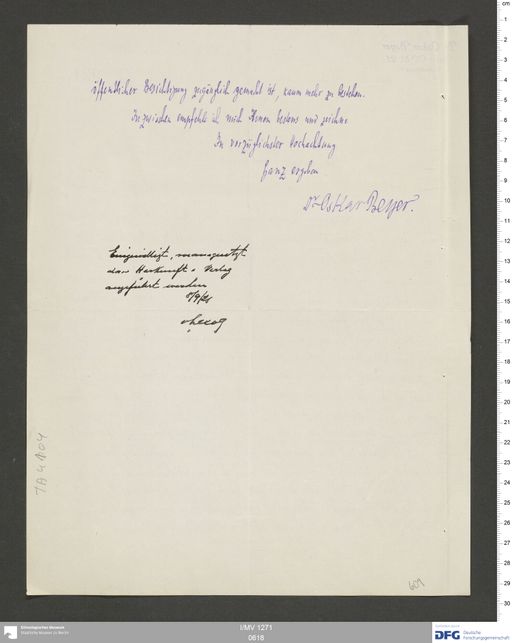 öffentlicher Besichtigung zugänglich gemacht ist, kaum mehr zu bestehen.
Inzwischen empfehle ich mich Ihnen bestens und zeichne
In vorzüglichster Hochachtung
ganz ergeben
Dr Oskar Beyer.
Eingewilligt, vorausgesetzt
dass Herkunft u. Verlag
angeführt werden
TA 4104
601
cm
1
2
3
4
5
6
7
8
9
10
11
12
13
14
15
16
17
18
19
20
21
22
23
24
25
26
27
28
29
30
Ethnologisches Museum
Staatliche Museen zu Berlin
I/MV 1271
0618
DFG
Deutsche
Forschungsgemeinschaft